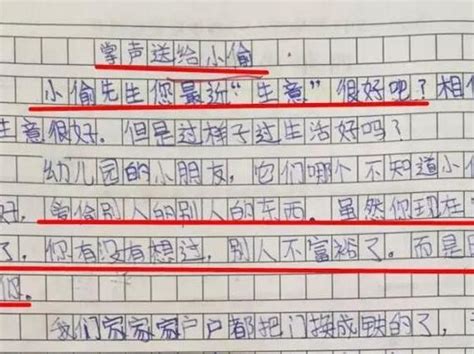 掌声送给小偷
小偷先生您最近“生意”很好吧？相
生意很好。但是过样子过生活好吗？
幼儿园的小朋友，它们哪个不知道小
好，爱偷别人的别人的东西。虽然你现在
了，你有没有想过，别人不富裕了。而是
你。
我们家家家户户都把门换成铁的了，